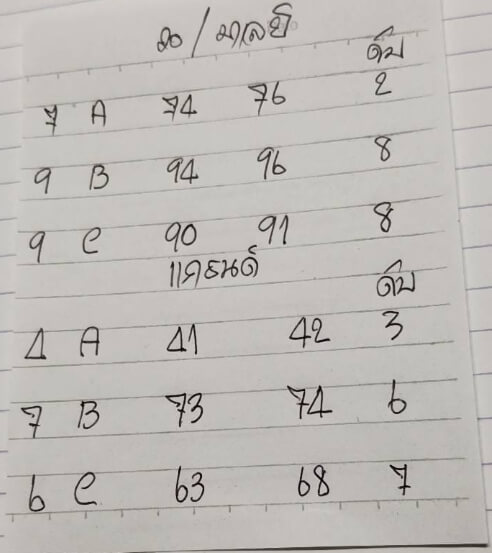 ลาว / มาเลย์
ดับ
7 A 74 76 2
9 B 94 96 8
9 C 90 91 8
แคธนด์
ดับ
4 A 41 42 3
7 B 73 74 6
6 C 63 68 7